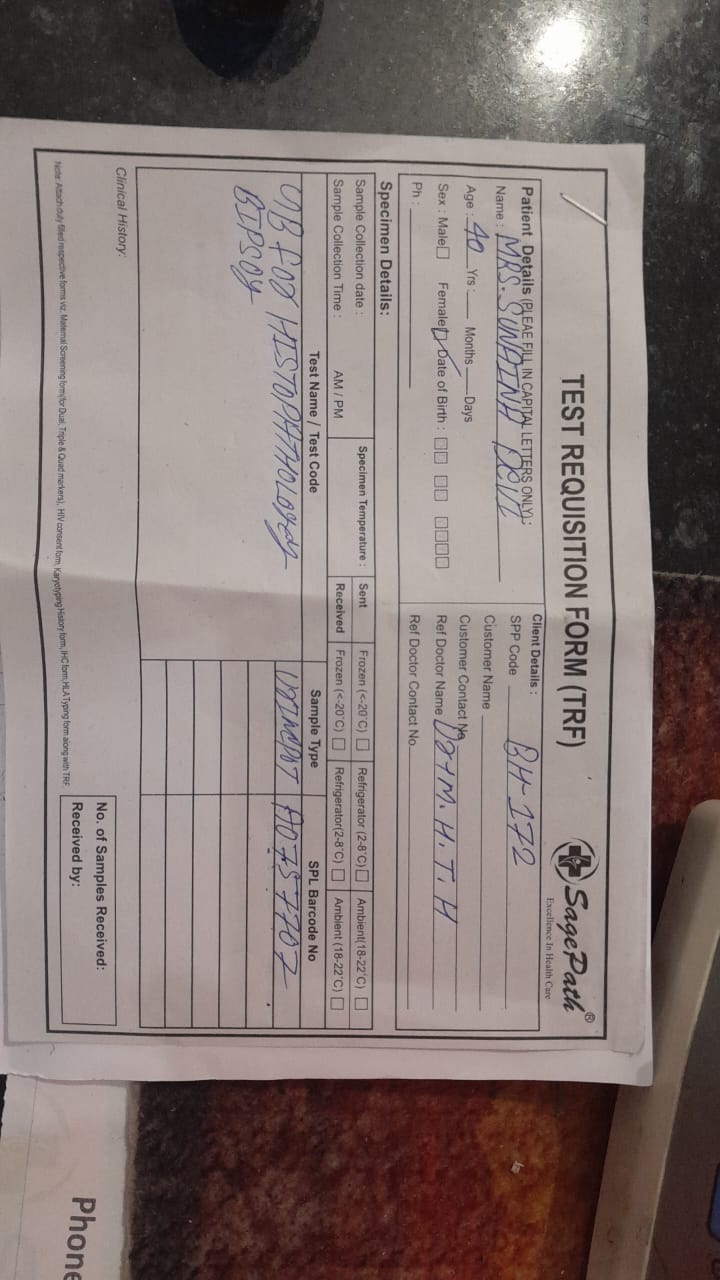 TEST REQUISITION FORM (TRF)
SagePath®
Excellence In Health Care
Patient Details (PLEAE FILL IN CAPITAL LETTERS ONLY):
Name : MRS. SUNAINA DEVI
Age : 40 Yrs : Months Days
Sex : Male Female Date of Birth :
Ph :
Client Details :
SPP Code BH-172
Customer Name
Customer Contact No
Ref Doctor Name M. H. T. H
Ref Doctor Contact No.
Specimen Details:
Sample Collection date :
Sample Collection Time : AM / PM
Specimen Temperature : Sent Frozen (<-20°C) Refrigerator (2-8°C) Ambient(18-22°C)
Received Frozen (<-20°C) Refrigerator(2-8°C) Ambient (18-22°C)
Test Name / Test Code Sample Type SPL Barcode No
FOR HISTOPATHOLOGY A0757707
BIPSOY
Clinical History:
No. of Samples Received:
Received by:
Note: Attach duly filled respective forms viz. Maternal Screening form(for Dual, Triple & Quad markers), HIV consent form, Karyotyping History form, IHC form, HLA Typing form along with TRF
Phone